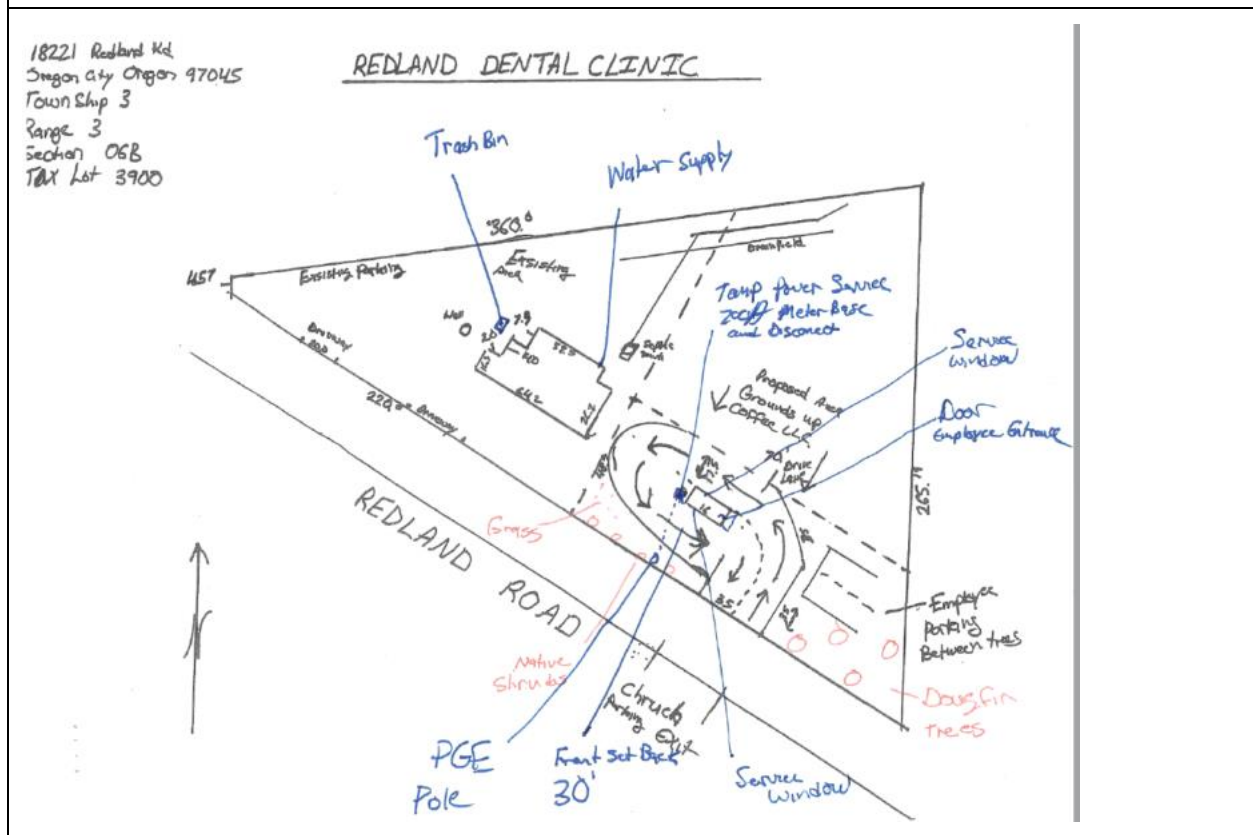 18221 Redland Rd
Oregon City Oregon 97045
Township 3
Range 3
Section 06B
Tax Lot 3900
REDLAND DENTAL CLINIC
Trash Bin
Water Supply
360.0
457
Exsisting Parking
Exsisting
Area
Drainfield
Well
20
7.9
52.0
Septic
Tank
64.2
26.2
Driveway
20.0
220.0
Driveway
Temp Power Service
200A Meter Base
and Disconect
Service
Window
Proposed Area
Grounds up
Coffee LLC
Door
Employee Entrance
Drive
16
265.11
Grass
35'
REDLAND ROAD
N
Employee
Parking
Between trees
Native
Shrubs
Chruch
Parking Exit
Doug Fir
Trees
PGE
Pole
Front Set Back
30'
Service
Window